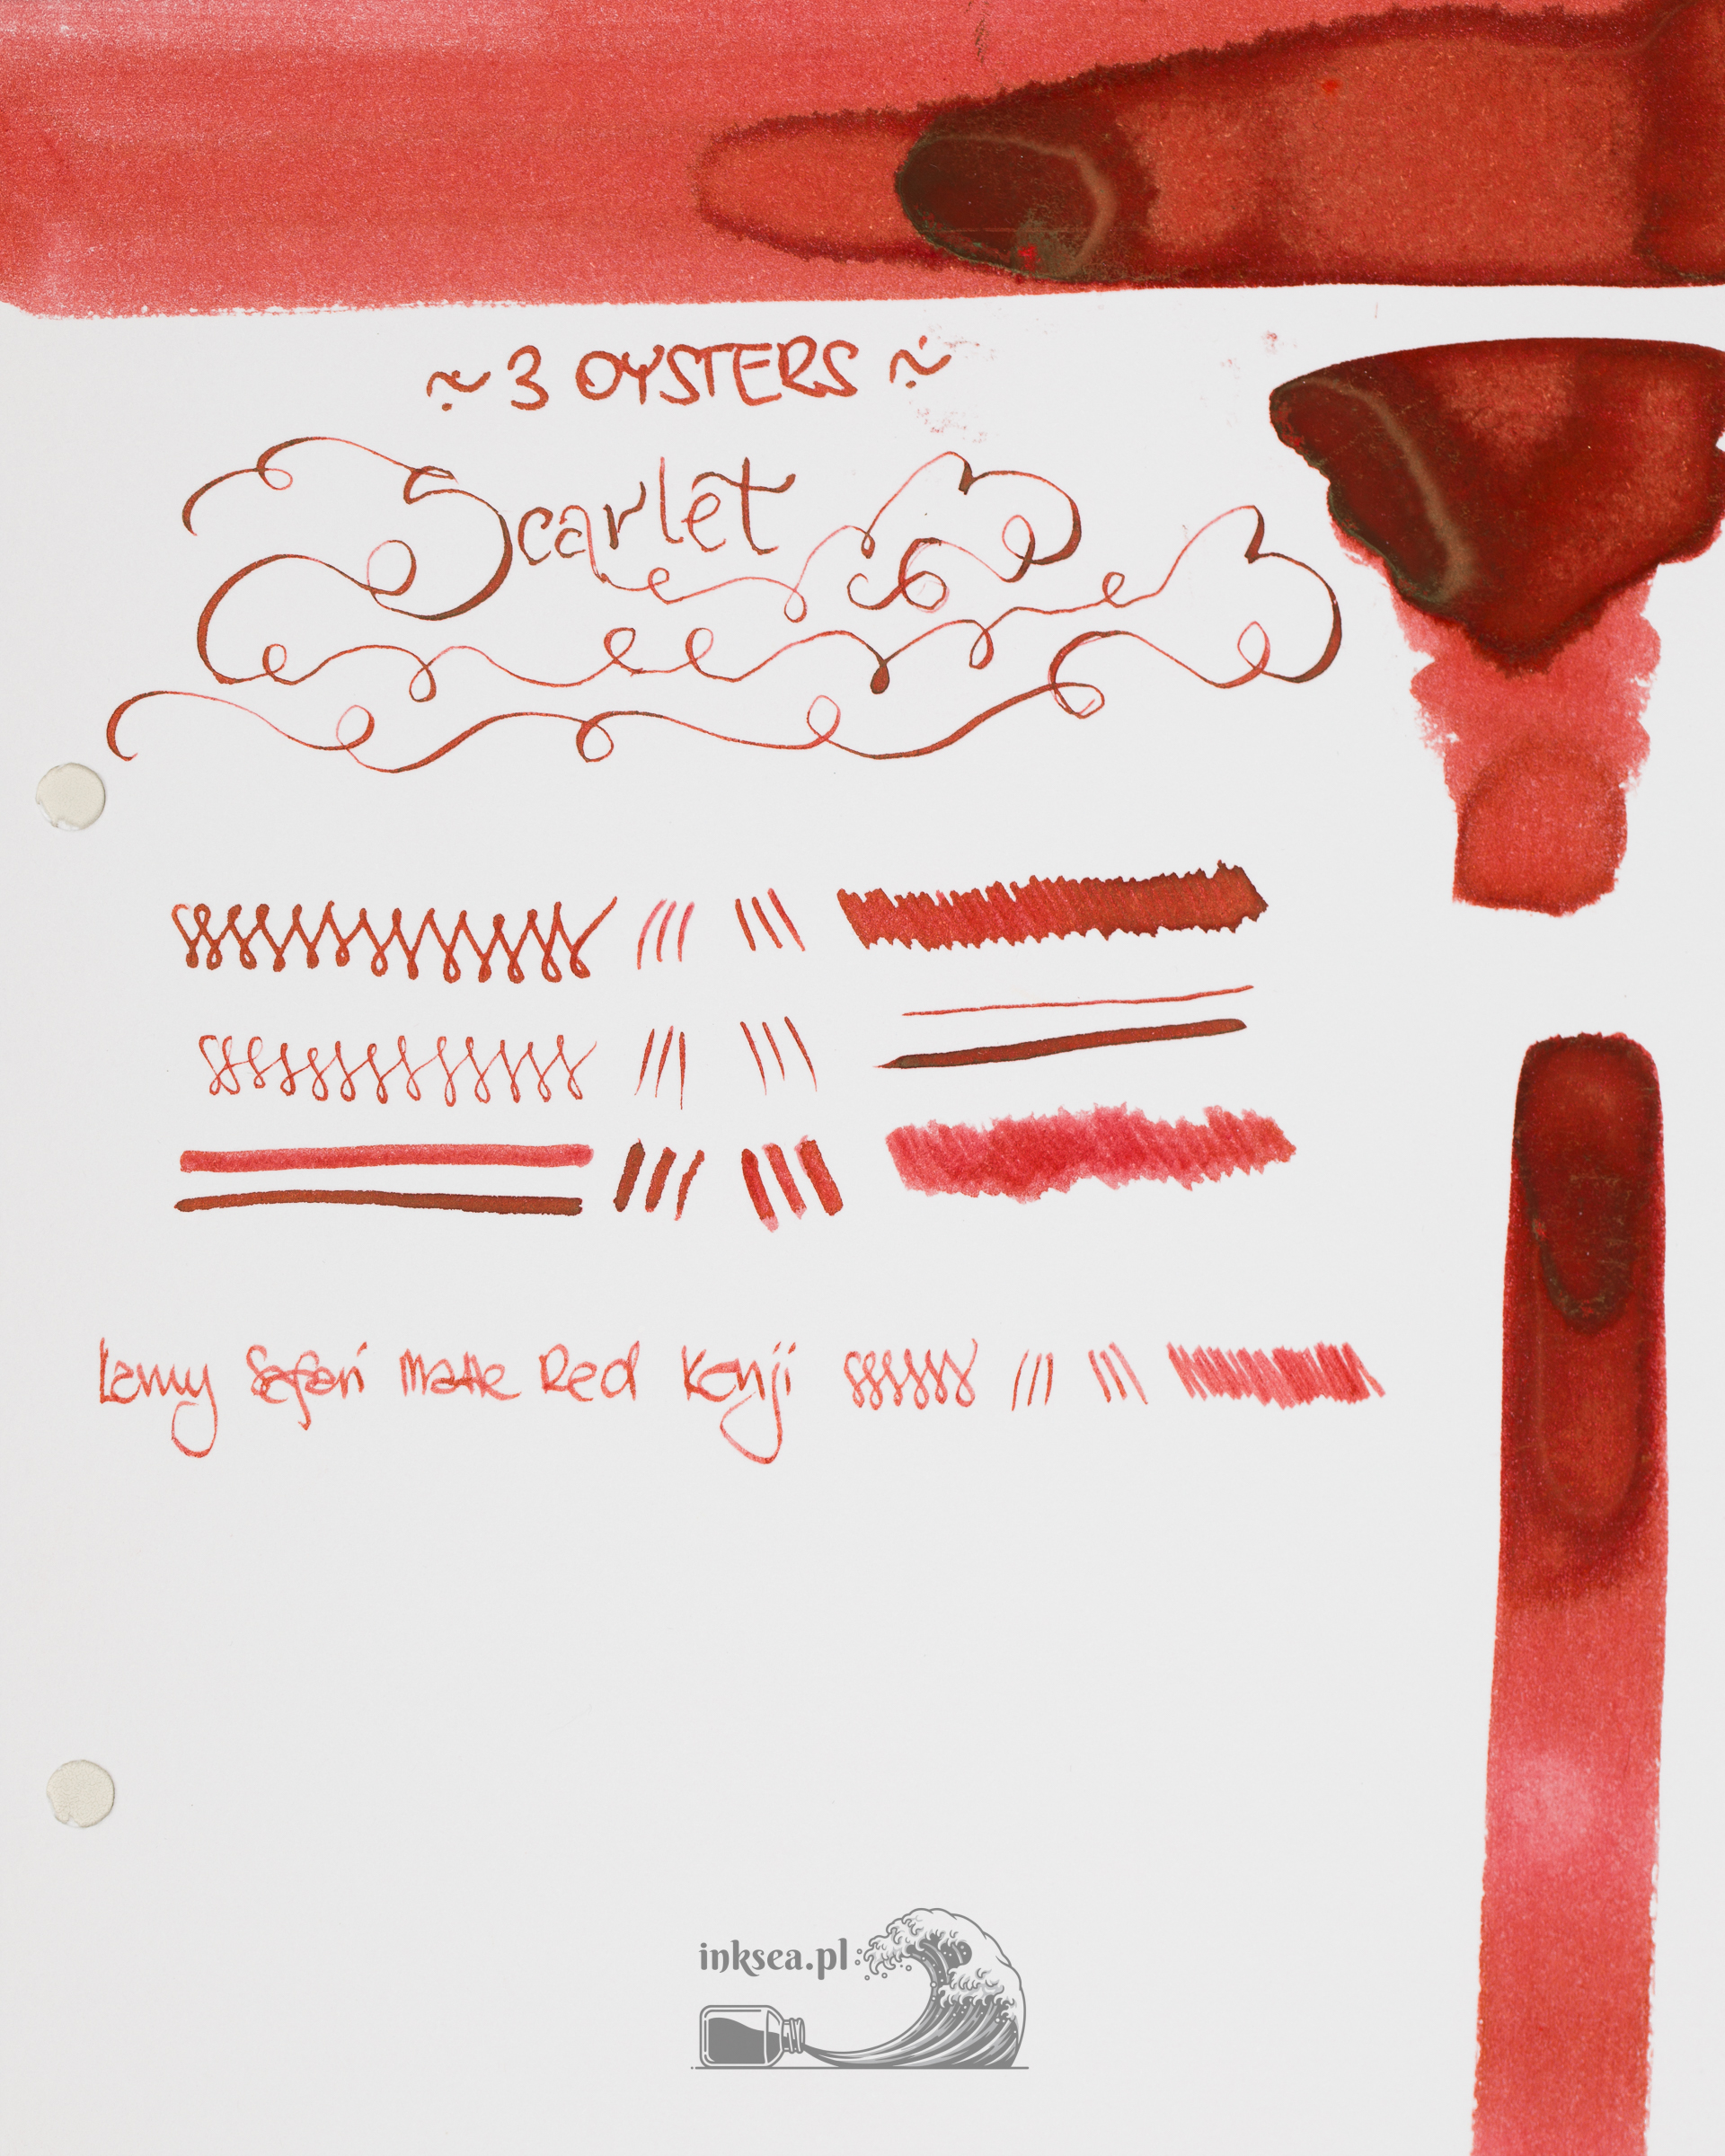 ~ 3 OYSTERS ~
Scarlet
Lamy Safari Matte Red Kenji
inksea.pl